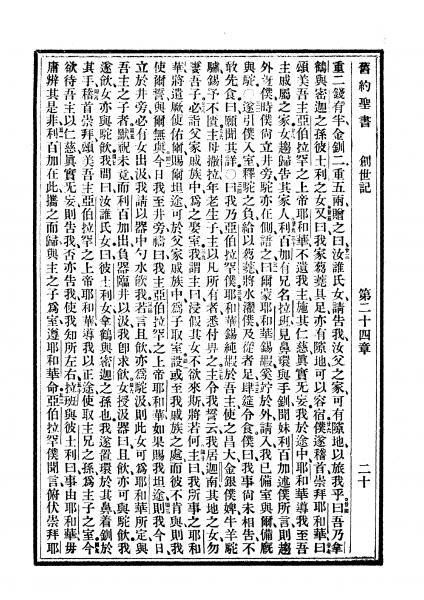 舊約聖書 創世記 第二十四章 二十
重二錢有半金釧二重五兩贈之曰汝誰氏女請告我汝父之家可有隙地以旅我乎曰吾乃拿
鶴與密迦之孫彼土利之女又曰我家蒭藁具足亦有隙地可以容宿僕遂稽首崇拜耶和華曰
頌美吾主亞伯拉罕之上帝耶和華不遺我主施其仁慈眞實无妄我於途中耶和華導我至吾
主戚屬之家女趨歸告其家人利百加有兄名拉班見鼻環與手釧聞妹利百加述僕所言則趨
外迓僕時僕尙立井旁駝亦在側語之曰爾蒙耶和華錫嘏奚竚於外請入我已備室與爾備廐
與駝○遂引僕入室釋駝之負給以蒭藁將水濯僕及從者足肆筵令食僕曰我事尙未相告不
敢先食曰願聞其詳○曰我乃亞伯拉罕僕耶和華錫純嘏於吾主使之昌大金銀僕婢牛羊駝
驢錫予不貲主母撒拉年老生子主以凡所有者悉付畀之主令我誓云我居迦南其地之女勿
妻吾子必詣父家戚族中爲之娶室我謂主曰浸假其女不欲來斯將若何主曰我所事之耶和
華將遣厥使佑爾賜爾坦途可於父家戚族中爲子取室設或至我戚族之處而彼不肯與則我
使爾誓與爾無與今日我至井旁禱曰我主亞伯拉罕之上帝耶和華如果賜我坦途則我今日
立於井旁必有女出汲我請以器中勺水飲我若言且飲亦爲駝汲則此女可爲耶和華所定與
吾主之子者默祝未竟而利百加出負器臨井以汲我卽求飲女授汲器曰且飲亦可與駝飲我
遂飲女亦與駝飲我問曰汝誰氏女曰彼土利女拿鶴與密迦之孫也我遂置環於其鼻着釧於
其手稽首崇拜頌美吾主亞伯拉罕之上帝耶和華導我以正途使取主兄之孫爲主子之室今
欲待吾主以仁慈眞實无妄則告我否亦告我使我知所左右拉班與彼土利曰事由耶和華毋
庸辨其是非利百加在此攜之而歸與主之子爲室遵耶和華命亞伯拉罕僕聞言俯伏崇拜耶